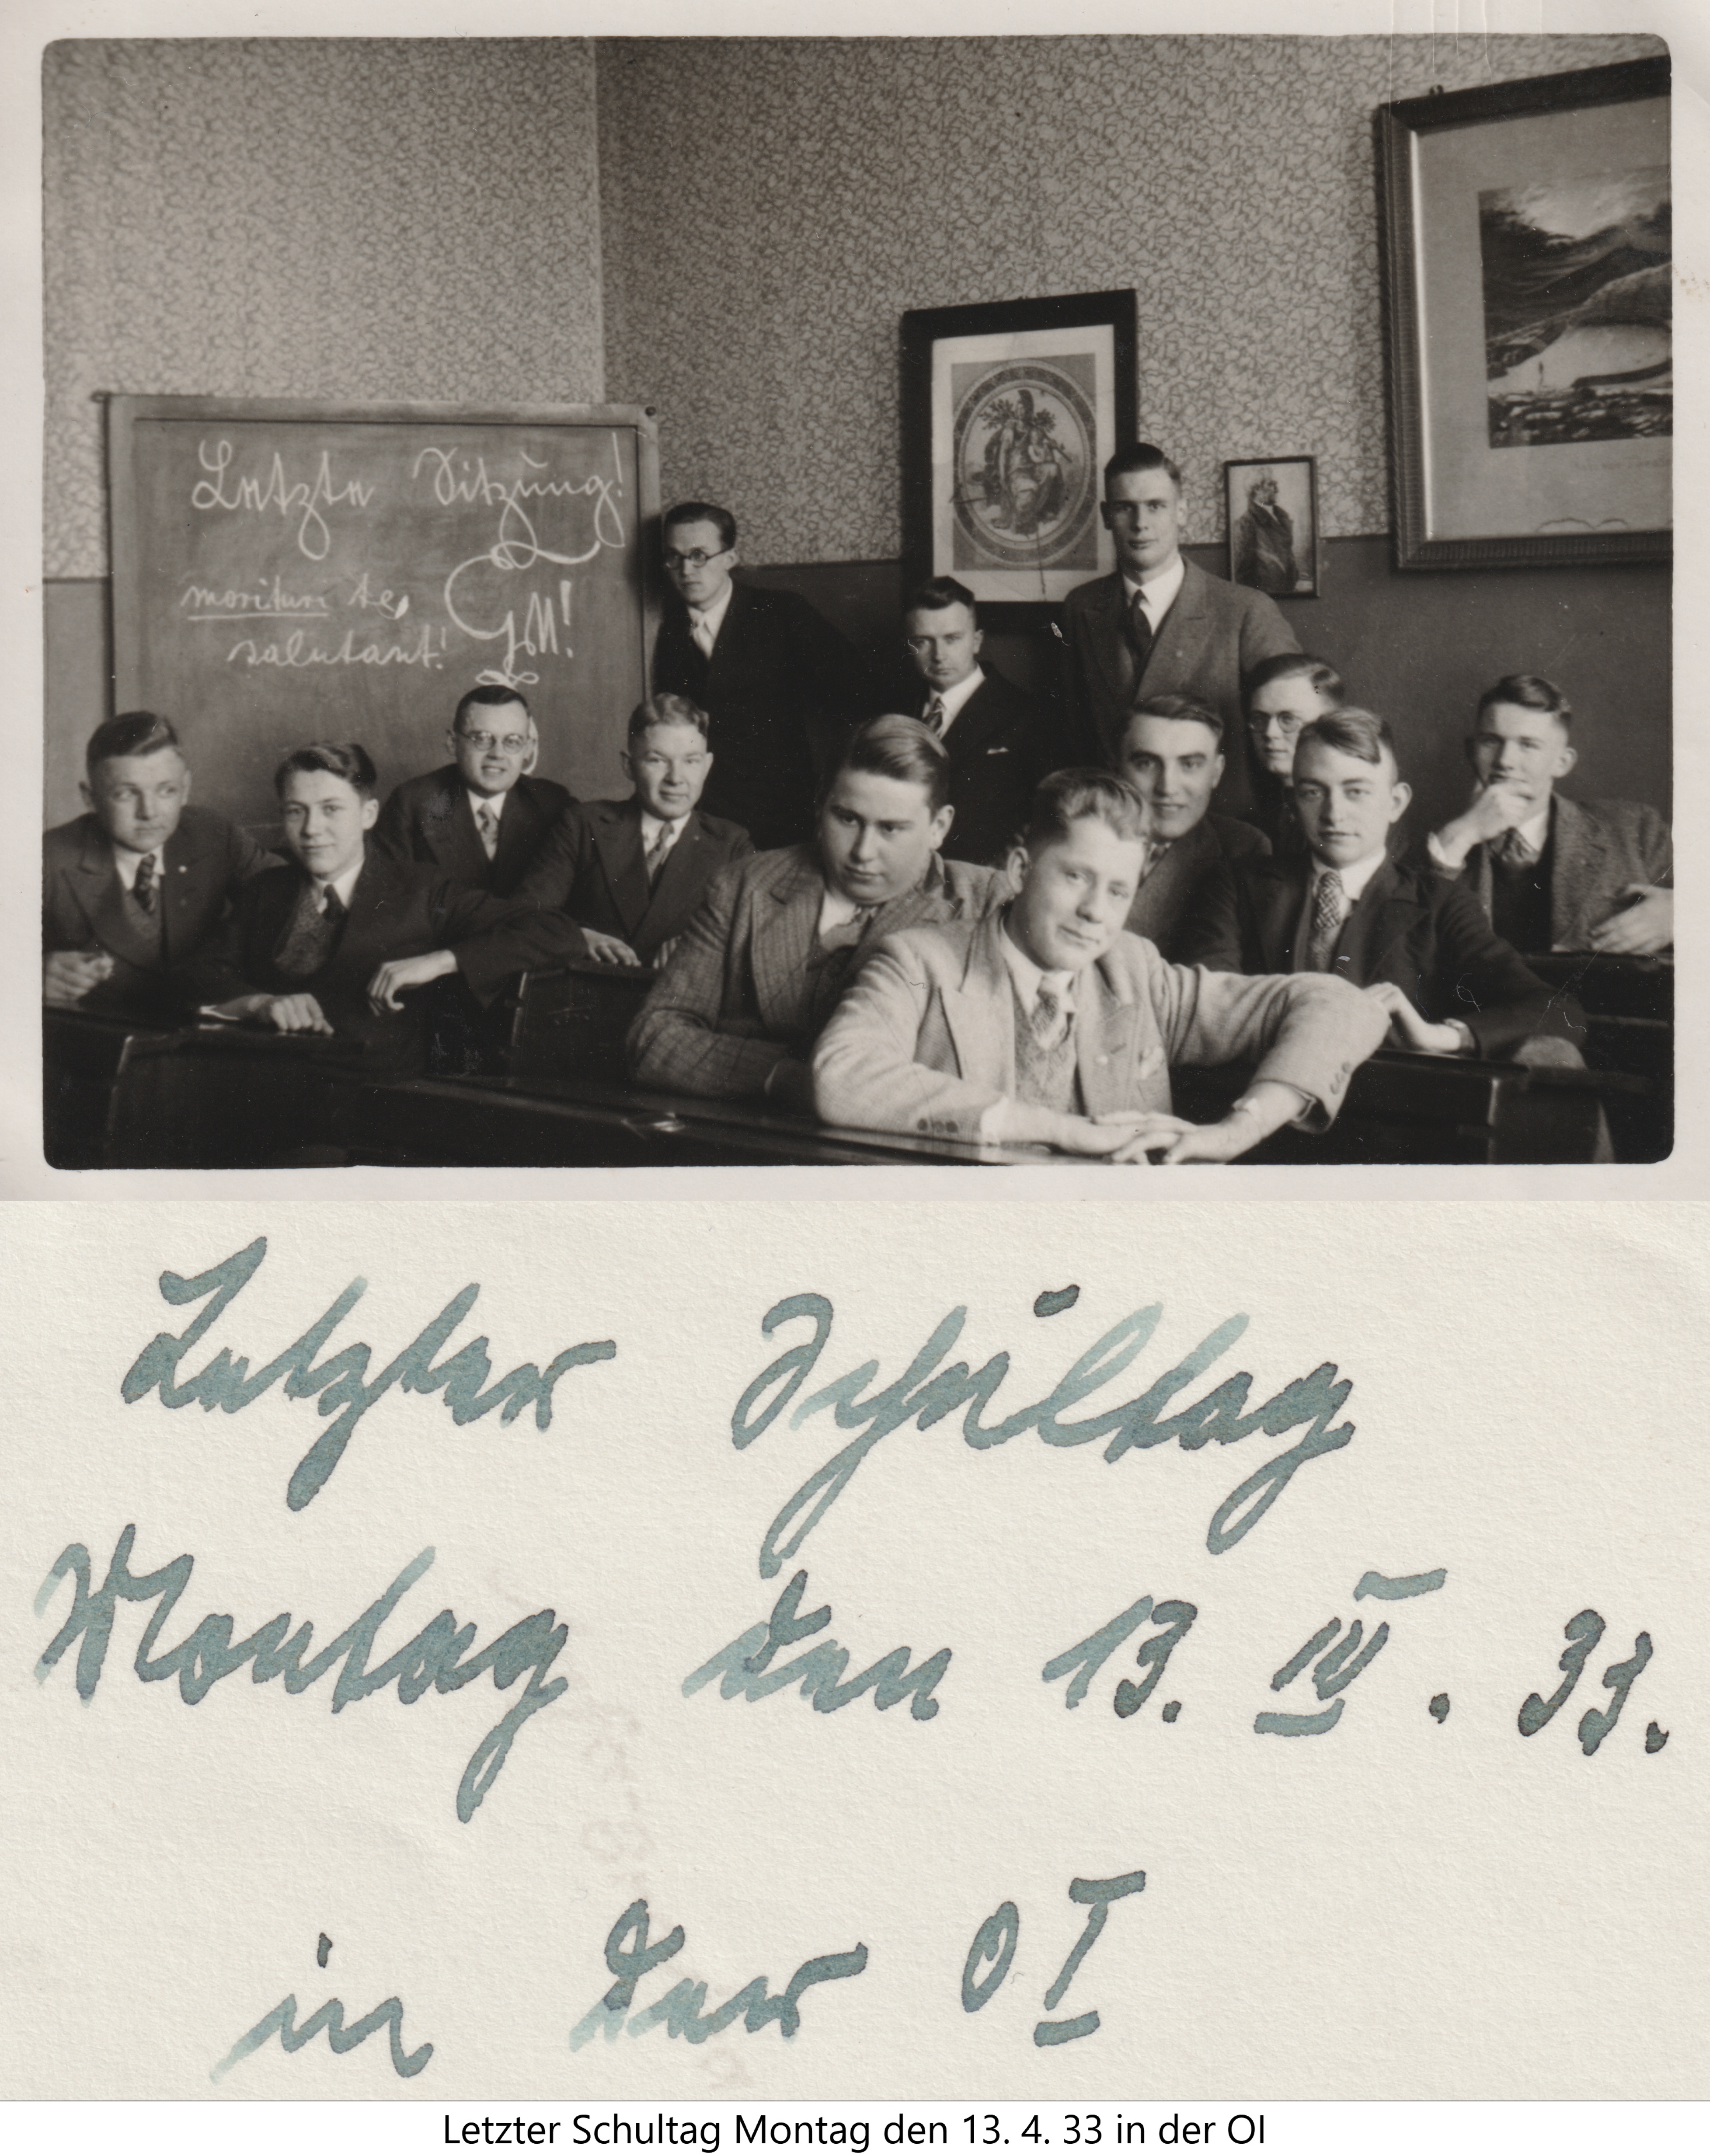 Letzte Sitzung!
morituri te,
salutant!
GM!
Letzter Schultag
Montag den 13. IV. 33.
in der OI
Letzter Schultag Montag den 13. 4. 33 in der OI